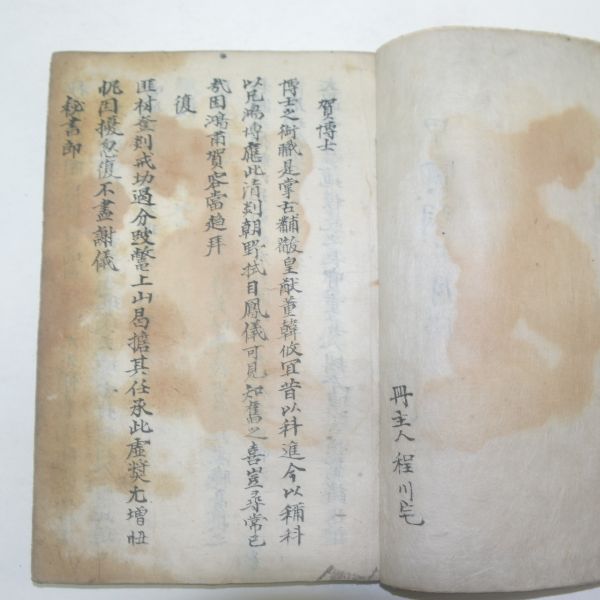 冊主人 程川宅
賀博士
博士之銜職是掌古黼黻皇猷董韓攸宜昔以科進今以稱科
以兄鴻博應此清剡朝野拭目鳳儀可見知舊之喜豈尋常已
哉因鴻甫賀容當趨拜
復
匪材登剡戒功過分跛鼈上山曷擔其任承此虛奬尤增忸
怩因擾忽復不盡謝儀
秘書郎